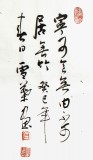 寧可食無肉不可
居無竹癸巳年
春日雪